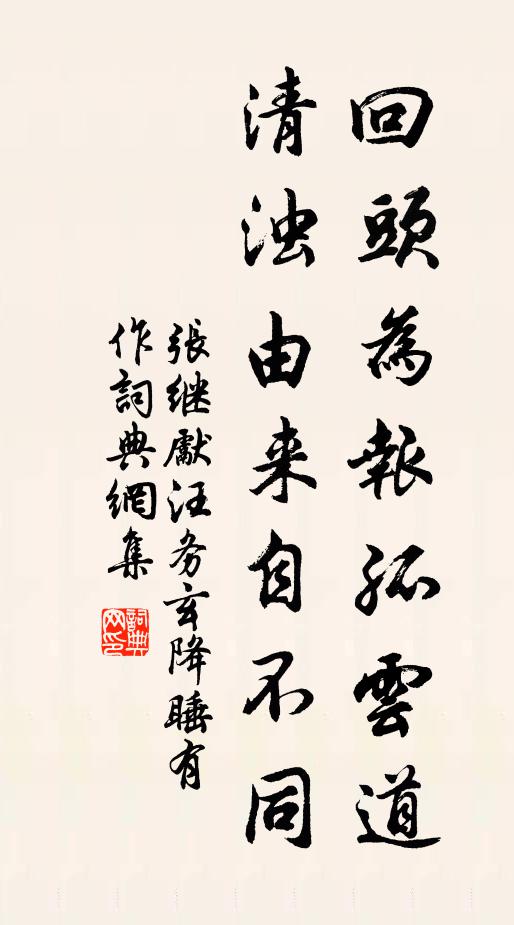 回頭為報孤雲道
清浊由来自不同
張继獻汪务玄降睡有
作詞典網集
詞典
网印